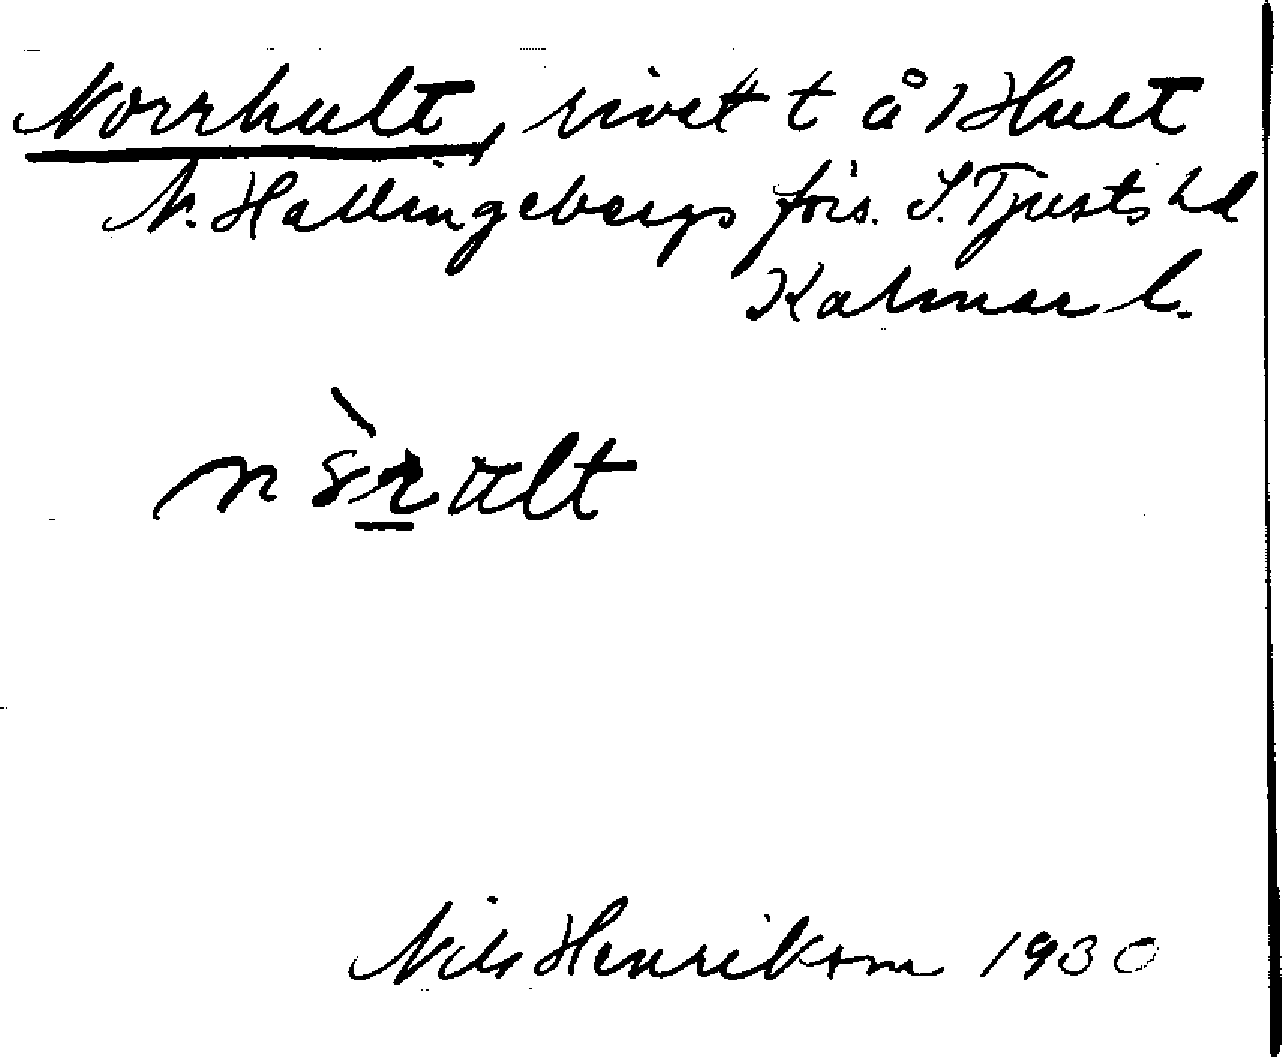 Norrhult, rivet t å Hult
N. Hallingebergs förs. S. Tjusts hd
Kalmar l.
Nils Henrikson 1930